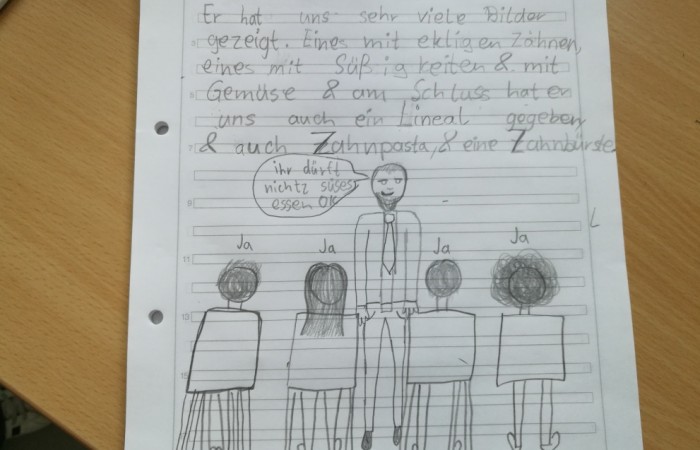 Er hat uns sehr viele Bilder
gezeigt. Eines mit ekligen Zähnen,
eines mit Süßigkeiten & mit
Gemüse & am Schluss hat er
uns auch ein Lineal gegeben
& auch Zahnpasta, & eine Zahnbürste
ihr dürft
nichtz süses
essen OK
Ja
Ja
Ja
Ja
9
11
13